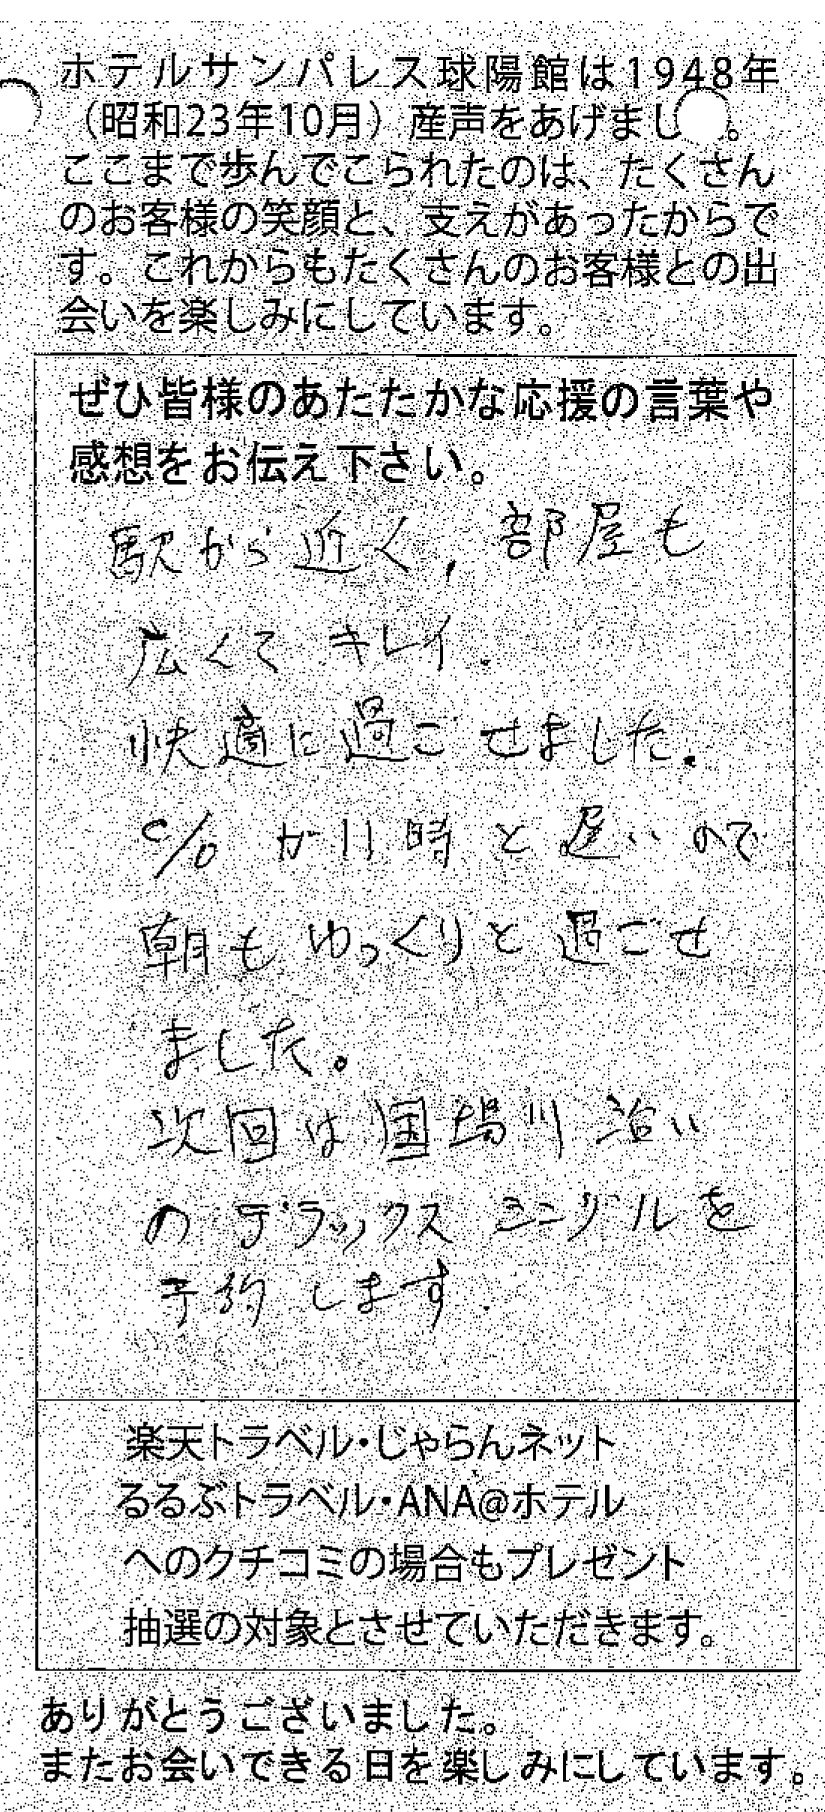 ホテルサンパレス球陽館は1948年
（昭和23年10月）産声をあげまし　。
ここまで歩んでこられたのは、たくさん
のお客様の笑顔と、支えがあったからで
す。これからもたくさんのお客様との出
会いを楽しみにしています。
ぜひ皆様のあたたかな応援の言葉や
感想をお伝え下さい。
駅から近く,部屋も
広くて キレイ.
快適に過ごせました.
C/Oが11時と遅いので
朝もゆっくりと過ごせ
ました。
次回は国場川沿い
のデラックス シングルを
予約します.
楽天トラベル・じゃらんネット
るるぶトラベル・ANA@ホテル
へのクチコミの場合もプレゼント
抽選の対象とさせていただきます。
ありがとうございました。
またお会いできる日を楽しみにしています。